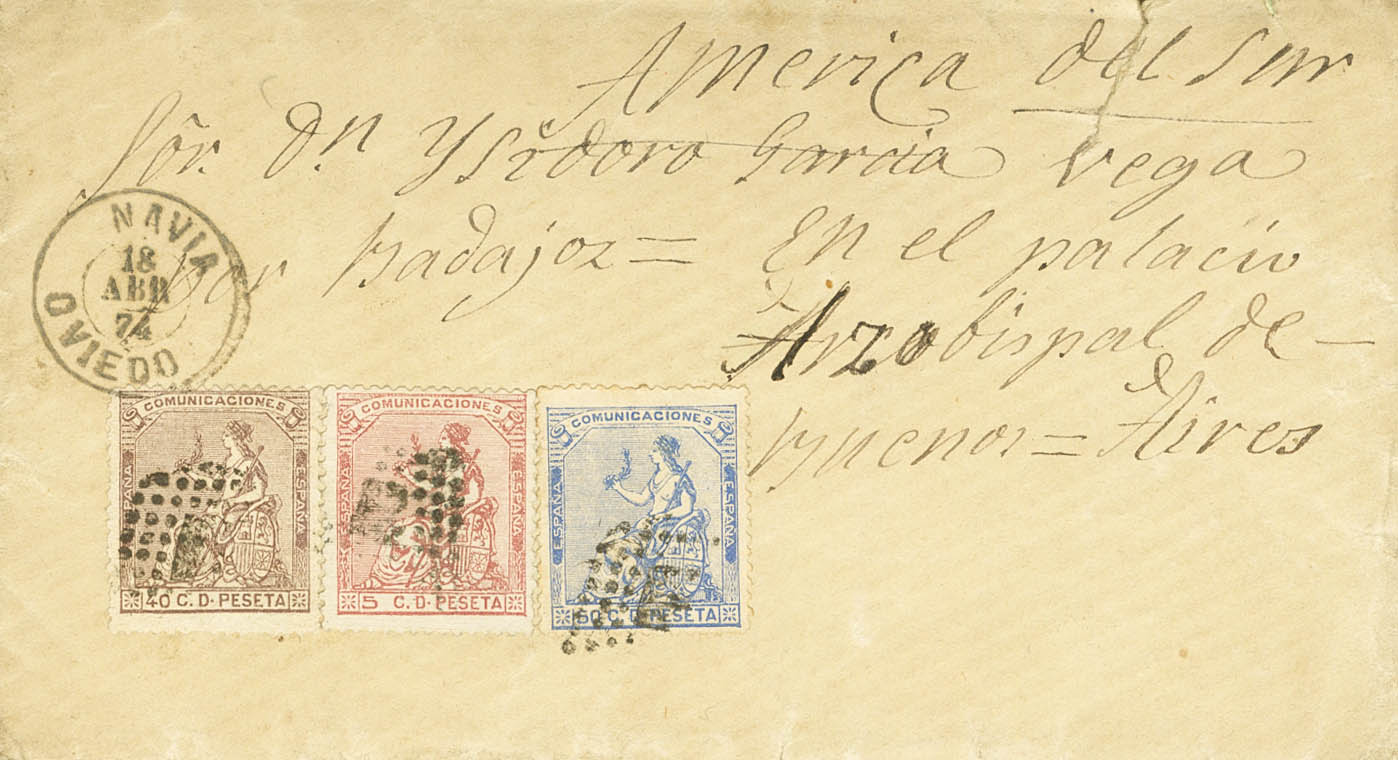 America del Sur
Sor. Dn Ysidoro Garcia Vega
por Badajoz = En el palacio
Arzobispal de -
Buenos = Aires
NAVIA
18
ABR
74
OVIEDO
COMUNICACIONES
ESPAÑA
ESPAÑA
40 C. D. PESETA
COMUNICACIONES
ESPAÑA
ESPAÑA
5 C. D. PESETA
COMUNICACIONES
ESPAÑA
ESPAÑA
50 C. D. PESETA